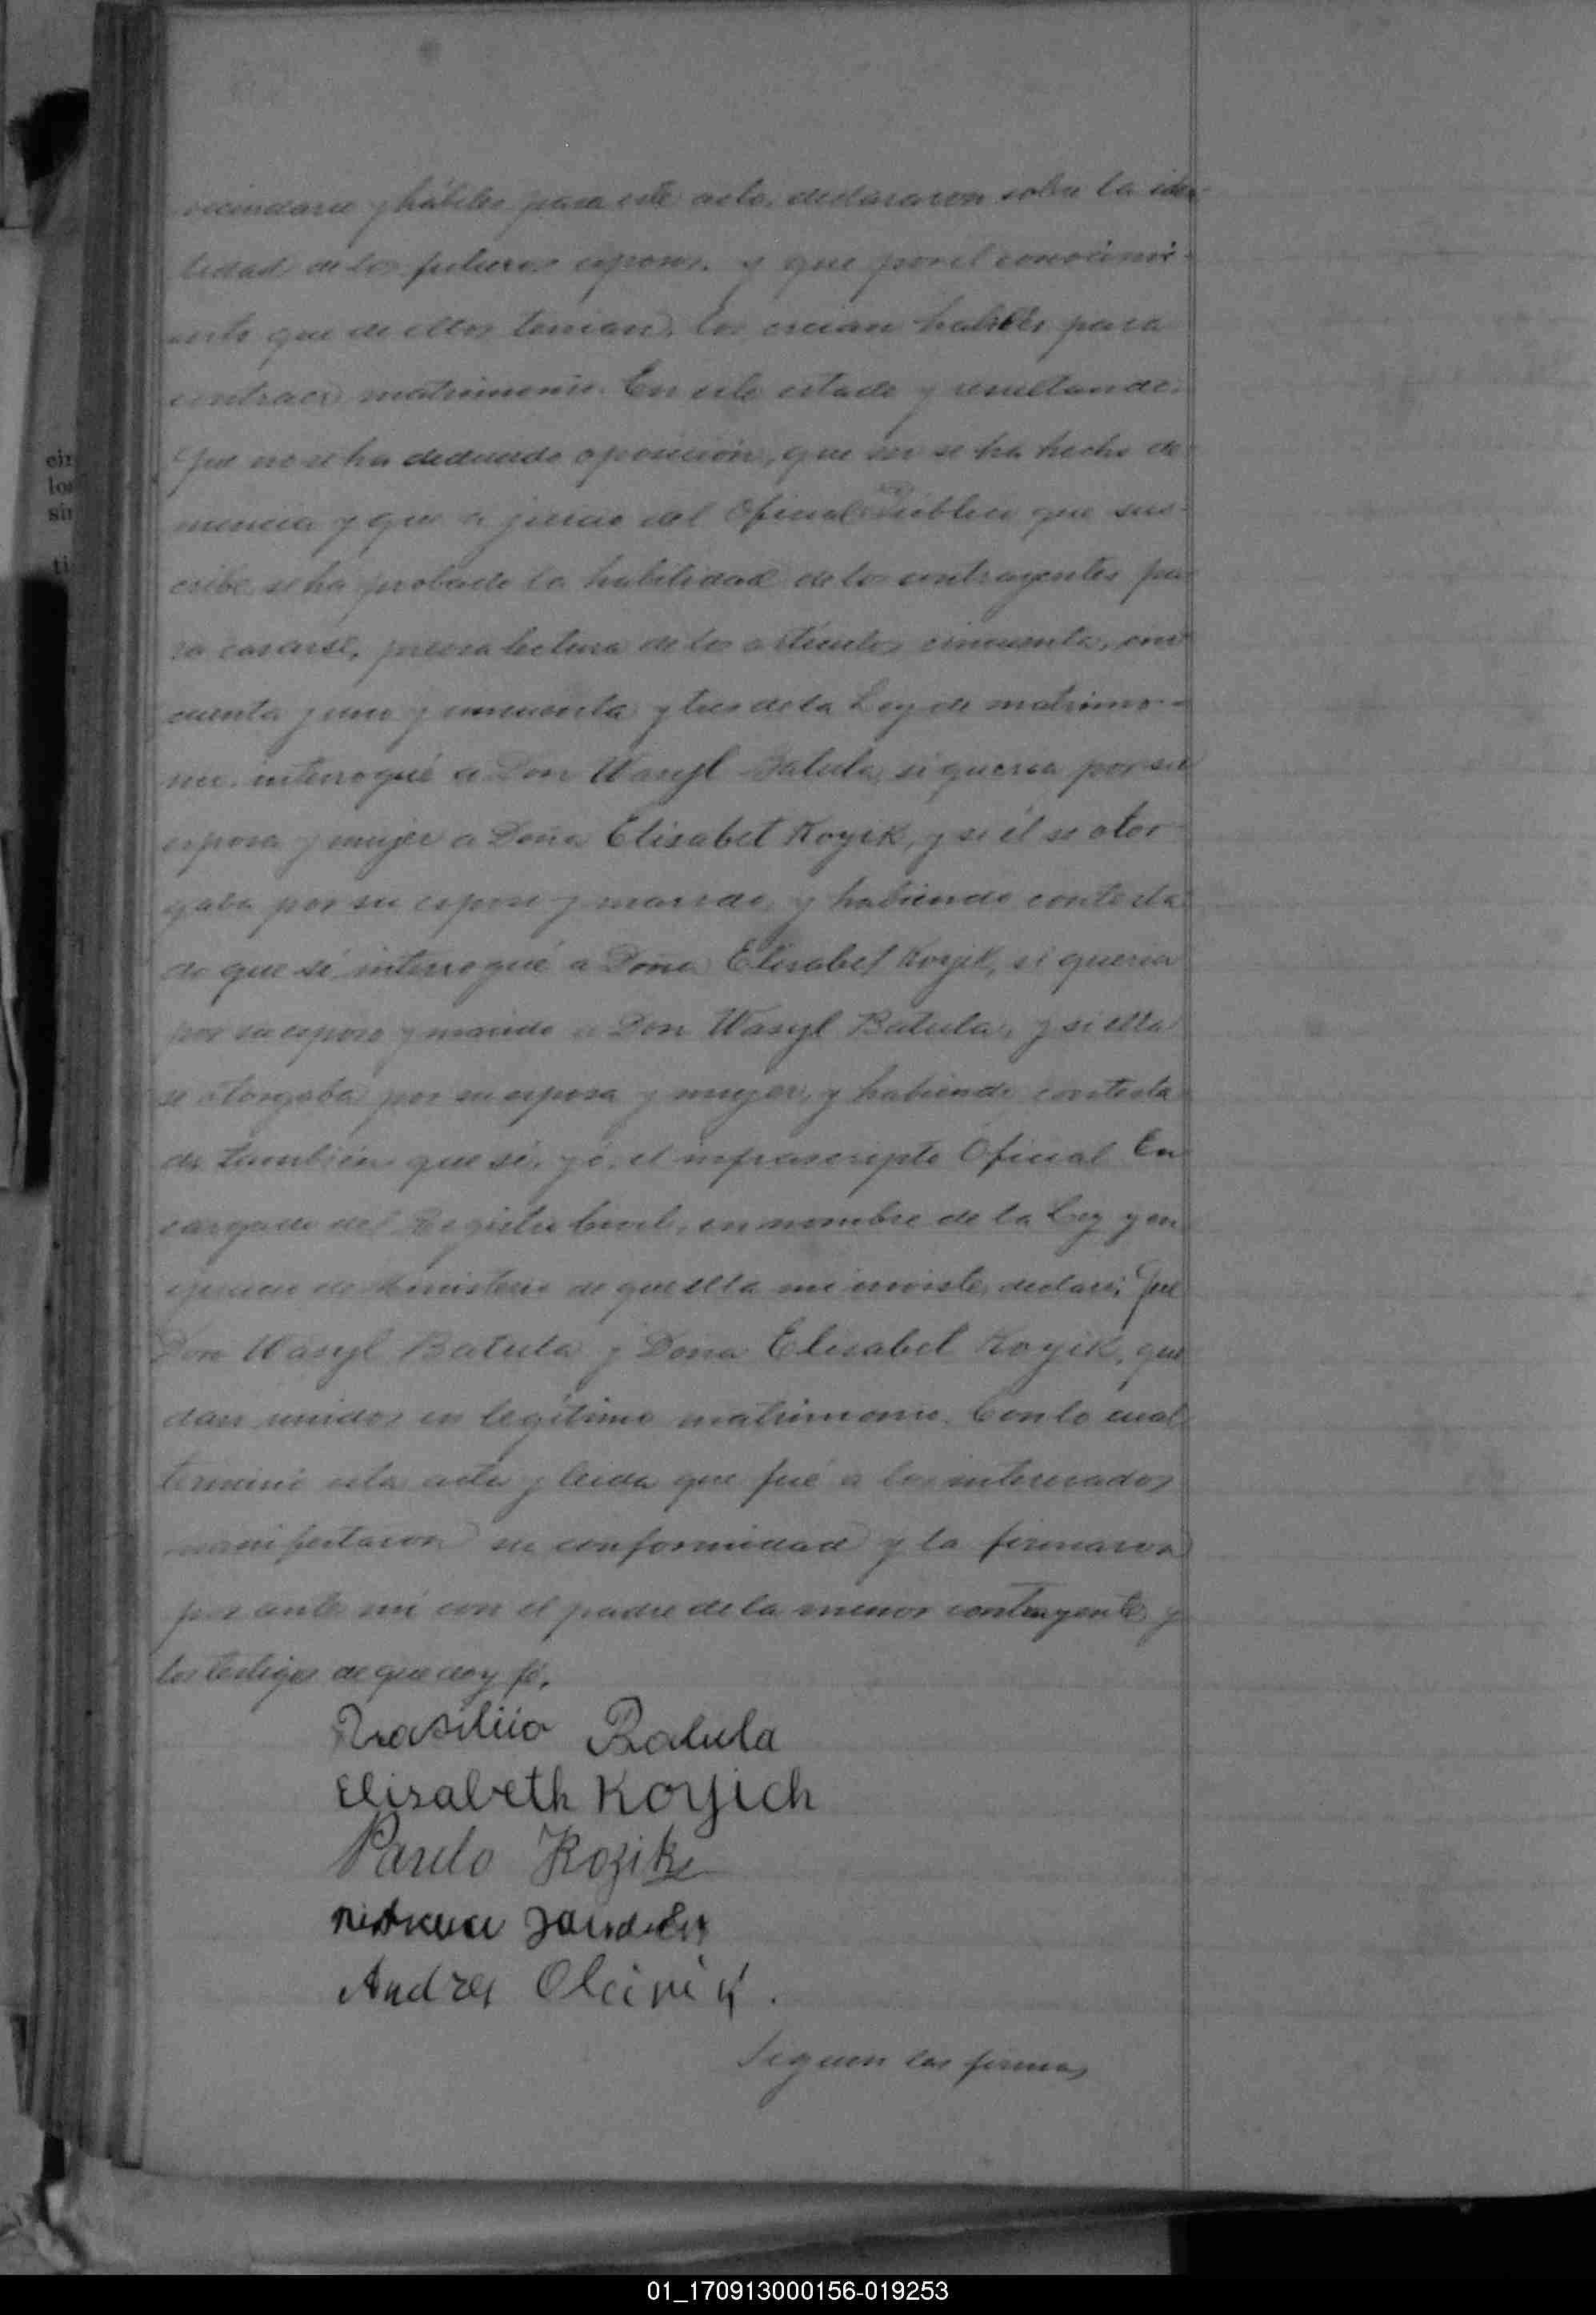 vecindario y hábiles para este acto, declararon sobre la iden-
tidad de los futuros esposos, y que por el conocimi-
ento que de ellos tenian, los creian habiles para
contraer matrimonio. En este estado y resultando:
Que no se ha deducido oposición, que no se ha hecho de-
nuncia y que a juicio del Oficial Público que sus-
cribe, se ha probado la habilidad de los contrayentes pa-
ra casarse, previa lectura de los artículos cincuenta, cin-
cuenta y uno y cincuenta y tres de la Ley de matrimo-
nio, interrogué a Don Wasyl Batula, si queria por su
esposa y mujer a Doña Elisabet Koyik, y si él se otor-
gaba por su esposo y marido, y habiendo contesta-
do que sí, interrogué a Doña Elisabet Koyik, si queria
por su esposo y marido a Don Wasyl Batula, y si ella
se otorgaba por su esposa y mujer, y habiendo contesta-
do también que sí, yo, el infrascripto Oficial En-
cargado del Registro Civil, en nombre de la Ley y en
ejercicio de Ministerio de que ella me inviste, declaré: Que
Don Wasyl Batula y Dona Elisabet Koyik, que-
dan unidos en legítimo matrimonio. Con lo cual
terminó esta acta y leida que fué a los interesados
manifestaron su conformidad y la firmaron
por ante mí con el padre de la menor contrayente y
los testigos de que doy fé.
Batula
Elisabeth Koyich
Pawlo Kozik
Andrés Oleinik.
Siguen las firmas
01_170913000156-019253